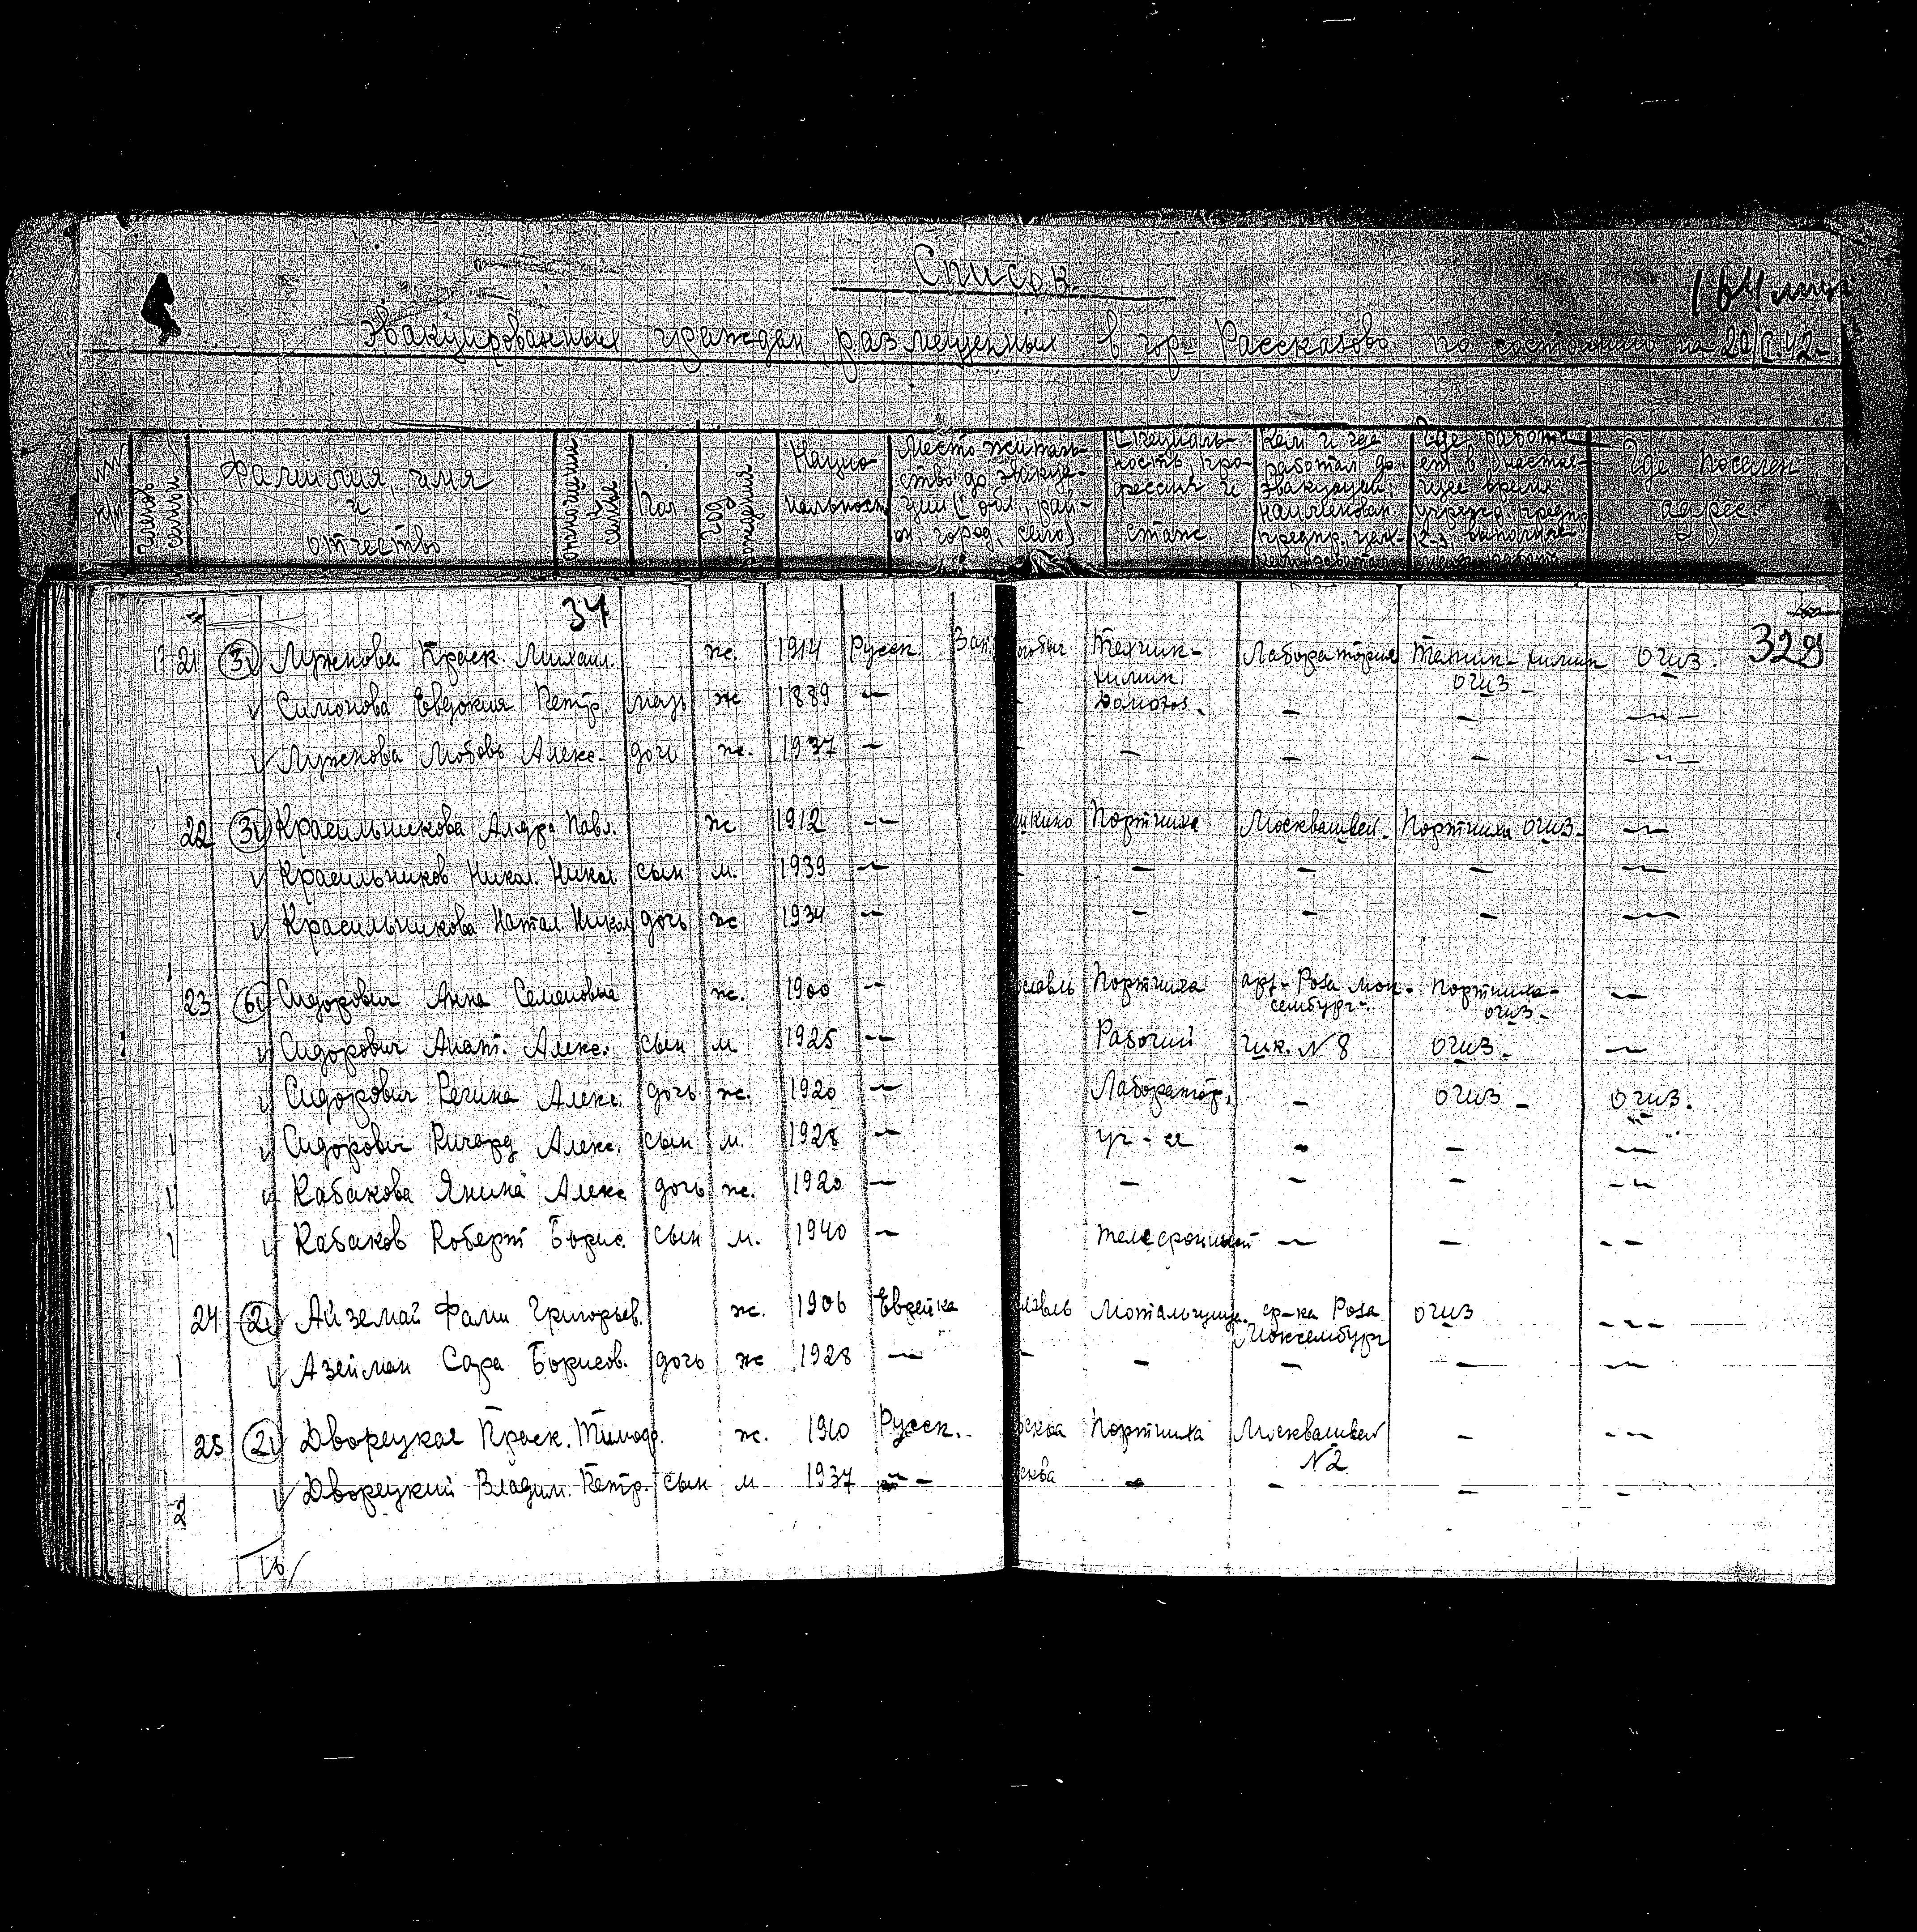 Список
164 лица
эвакуированных граждан, размещенных в гор. Рассказово по состоянию на 20/I 42
Фамилия, имя и отчество
Пол
Год рождения
Национальность
Место жительства до эвакуации (обл., район, город, село).
Специальность, профессия и стаж.
Кем и где работал до эвакуации,
Где работает в настоящее время
Где поселен адрес.
34
329
21 3 Лужнова Праск. Михаил. ж. 1914 Русск. Зап. Техник-химик. Лаборатория Техник-химик ОЧиЗ - ОЧиЗ.
Симонова Евдокия Петр. мать ж 1889 -"- Домохоз. - - -"-
Лужнова Любовь Алекс. дочь ж. 1937 - - - - -"-
22 3 Красильникова Алдра Павл. ж 1912 -"- Портниха Москвашвей- Портниха ОЧиЗ- -"-
Красильников Никол. Никол сын м. 1939 -"- - - - -"-
Красильникова Натал. Никол дочь ж 1934 -"- - - - -"-
23 6 Сидорович Анна Семеновна ж. 1900 -"- Портниха арт- Роза Люксембург- Портниха- ОЧиЗ- -"-
Сидорович Анат. Алекс. сын м 1925 -"- Рабочий № 8 ОЧиЗ- -"-
Сидорович Регина Алекс. дочь ж. 1920 -"- Лаборатор. - ОЧиЗ - ОЧиЗ.
Сидорович Ричард Алекс. сын м. 1928 -"- уч-ся - - -"-
Кабакова Янина Алекс дочь ж. 1920 -"- - - - -"-
Кабаков Роберт Борис. сын м. 1940 -"- -"- - -"-
24 2 Айземай Фани Григорьев. ж. 1906 Еврейка Мотальщица. ф-ка Роза Люксембург ОЧиЗ -"-
Азейман Сара Борисов. дочь ж 1928 -"- - - - - -"-
25 2 Дворецкая Праск. Тимоф. ж. 1910 Русск. Портниха Москвашвей №2 - -"-
Дворецкий Владим. Петр. сын м 1937 -"- - - - -